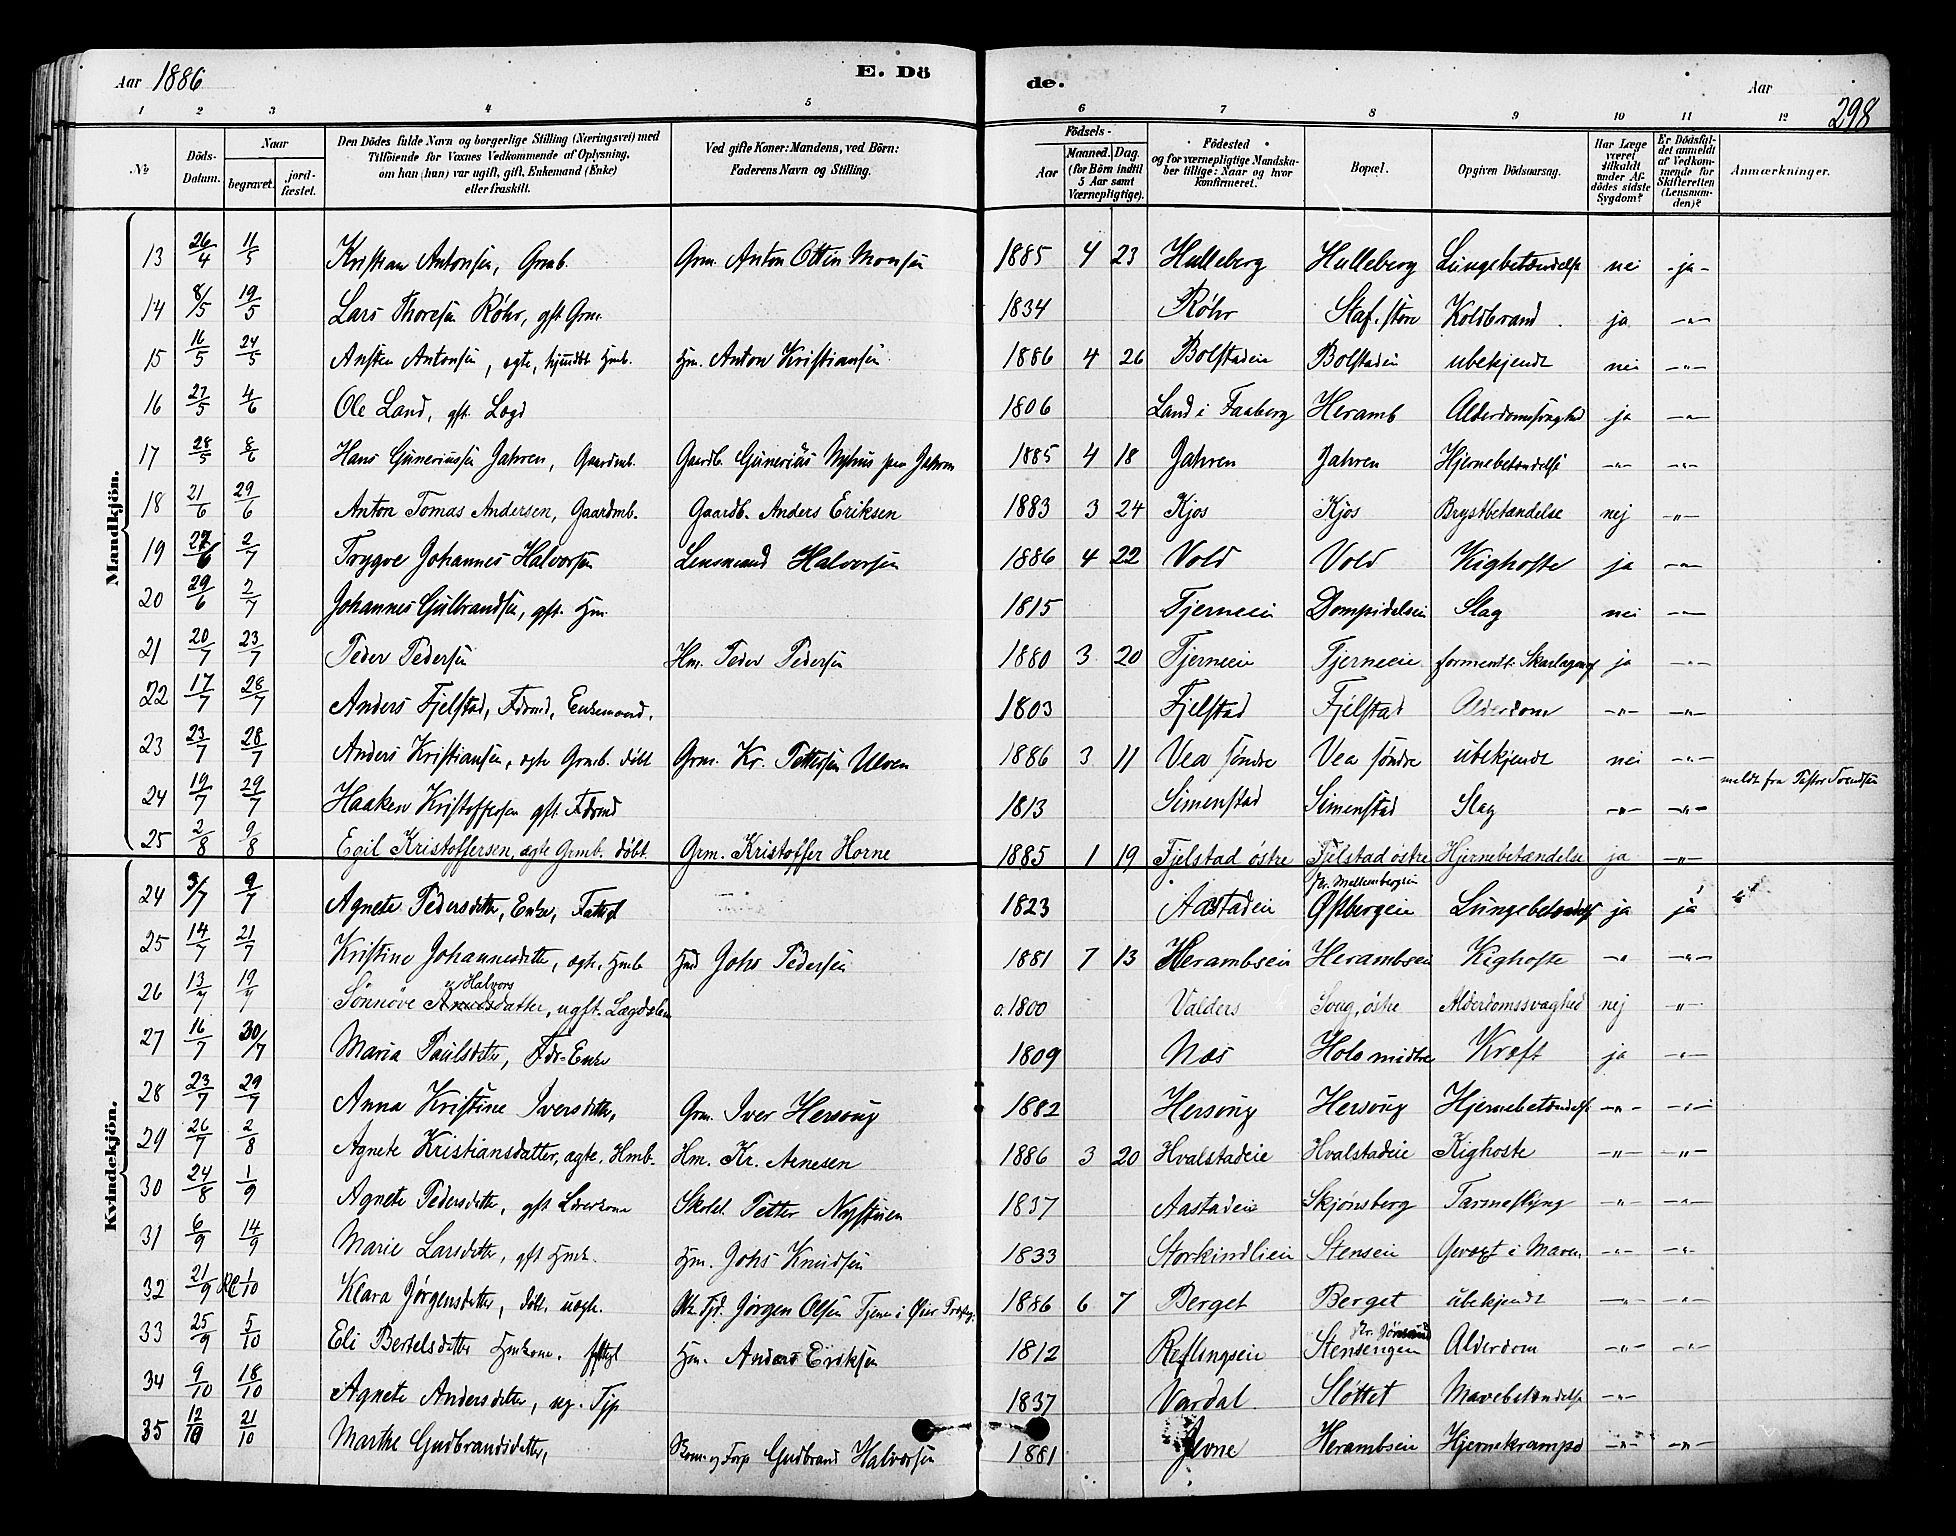 Aar 1886 E. Dö de. Aar
298
1 2 3 4 5 6 7 8 9 10 11 12
No Döds-Datum. Naar begravet. jordfæstet. Den Dödes fulde Navn og borgerlige Stilling (Næringsvei) med Tilföiende for Voxnes Vedkommende af Oplysning, om han (hun) var ugift, gift, Enkemand (Enke) eller fraskilt. Ved gifte Koner: Mandens, ved Börn: Faderens Navn og Stilling. Födsels- Aar Maaned. Dag. (for Börn indtil 5 Aar samt Værnepligtige). Födested og for værnepligtige Mandskaber tillige: Naar og hvor konfirmeret. Bopæl. Opgiven Dödsaarsag. Har Læge været tilkaldt under Afdödes sidste Sygdom? Er Dödsfaldet anmeldt af Vedkommende for Skifteretten (Lensmanden)? Anmærkninger.
Mandkjön.
13 26/4 11/5 Kristian Antonsen, Grmb. Grm. Anton Ottin Monsen 1885 4 23 Hulleberg Hulleberg Lungebetændelse nei -ja-
14 8/5 19/5 Lars Thoresen Røhr, gft Grm. 1834 Røhr Staf. store Koldbrand. ja -"-
15 16/5 24/5 Ansten Antonsen, ægte, hjmdbt Hmb. Hm. Anton Kristiansen 1886 4 26 Bolstadeie Bolstadeie ubekjendt nei -"-
16 27/5 4/6 Ole Land, gft. Lægd 1806 Land i Faaberg Heramb Alderdomssvaghed ja -"-
17 28/5 8/6 Hans Gunerius­sen Jahren, Gaardmb. Gaardb. Gunerius Nyhus paa Jahren 1885 4 18 Jahren Jahren Hjernebetændelse -"- -"-
18 21/6 29/6 Anton Tomas Andersen, Gaardmb. Gaardb. Anders Eriksen 1883 3 24 Kjos Kjos Brystbetændelse nej -"-
19 27/6 2/7 Trygve Johannes Halvorsen Lensmand Halvorsen 1886 4 22 Vold Vold Kighoste ja -"-
20 29/6 2/7 Johannes Gulbrandsen, gft. Hm. 1815 Tjerneeie Slag nei -"-
21 20/7 23/7 Peder Pedersen Hm. Peder Pedersen 1880 3 20 Tjerneeie Tjerneeie forment. Skarlagensf ja -"-
22 17/7 28/7 Anders Fjelstad, Fdrmd, Enkemand. 1803 Fjelstad Fjelstad Alderdom -"- -"-
23 23/7 28/7 Anders Kristiansen, ægte Grmb. døbt Grm. Kr. Pettersen Ulven 1886 3 11 Vea søndre Vea søndre ubekjendt nei -"-
24 19/7 29/7 Haaken Kristoffersen gft. Fdrmd 1813 Simenstad Simenstad Slag -"- -"- meldt fra Pastor Svendsen
25 2/8 9/8 Egil Kristoffersen, ægte Grmb. døbt. Grm. Kristoffer Horne 1885 1 19 Fjelstad østre Fjelstad østre Hjernebetændelse ja -"-
Kvindekjön.
24 3/7 9/7 Agnete Pedersdtter, Enke, Fattigl 1823 Aastadeie Pr. Mellembergeie Østbergeie Lungebetændelse ja ja
25 14/7 21/7 Kristine Johannesdtter, ægte, Hmb Hmd Johs Pedersen 1881 7 13 Herambseie Herambseie Kighoste -"- -"-
26 13/7 19/7 Sønnøve Halvorsdatter, ugft. Lægdslem o. 1800 Valders Svug, østre Alderdomssvaghed nej -"-
27 16/7 30/7 Maria Paulsdtter, Fdr-Enke 1809 Næs Hole midtre Kræft ja -"-
28 23/7 29/7 Anna Kristine Iversdtter, Grm. Iver Hersoug 1882 Hersoug Hersoug Hjernebetændelse -"- -"-
29 26/7 2/8 Agnete Kristiansdatter, ægte, Hmb. Hm. Kr. Arnesen 1886 3 20 Hvalstadeie Hvalstadeie Kighoste -"- -"-
30 24/8 1/9 Agnete Pedersdtter, gft Lærerkone Skolel. Petter Nystuen 1837 Aastadeie Skjønsberg Tarmeslyng -"- -"-
31 6/9 14/9 Marie Larsdtter, gft Hmk. Hm. Johs Knudsen 1833 Storkindlieie Stenseie Gevæxt i Maven -"- -"-
32 21/9 1/10 Klara Jørgensdtter, døbt, uægte. Jørgen Olsen Tjener i Øier 1886 6 7 Berget Berget ubekjendt -"- -"-
33 25/9 5/10 Eli Bertelsdtter Hmkone. fattigl Hm. Anders Eriksen 1812 Reflingseie Stensengen Alderdom -"- -"-
34 9/10 18/10 Agnete Andersdtter, ug. Tjp 1837 Vardal Sløttet Mavebetændelse -"-
35 12/10 21/10 Marthe Gudbrandsdtter, Gudbrand Halvorsen 1881 Jevne Herambseie Hjernekrampe -"- -"-